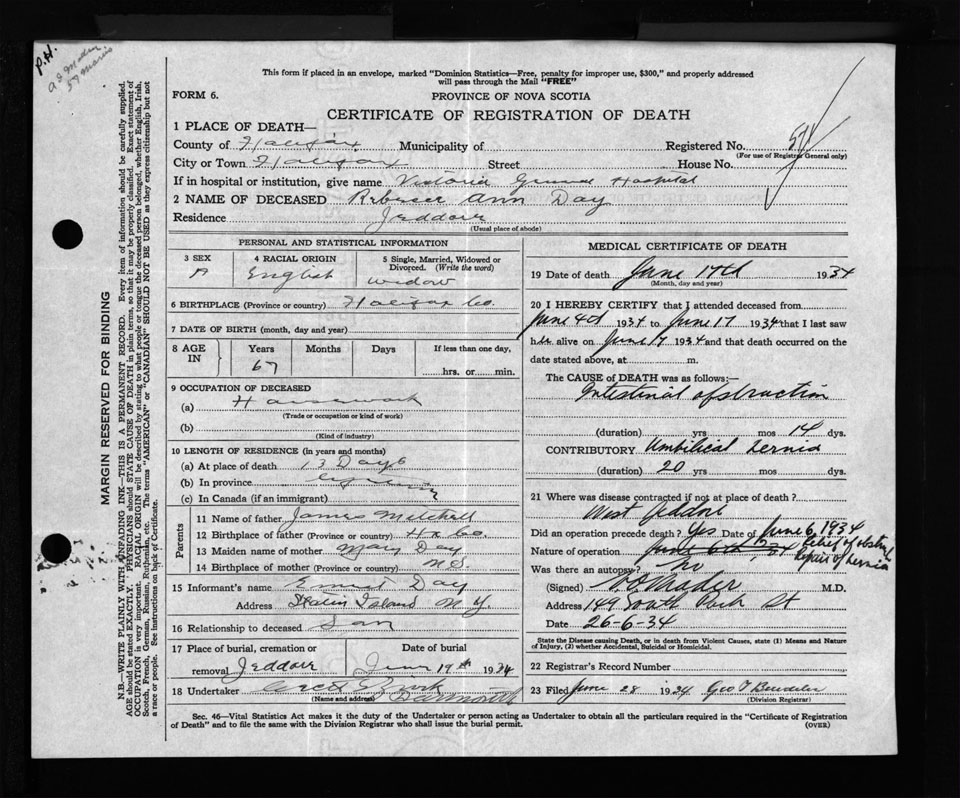 P.H.
This form if placed in an envelope, marked "Dominion Statistics—Free, penalty for improper use, $300," and properly addressed
will pass through the Mail "FREE"
FORM 6.
PROVINCE OF NOVA SCOTIA
CERTIFICATE OF REGISTRATION OF DEATH
1 PLACE OF DEATH—
County of Halifax Municipality of Registered No.
(For use of Registrar General only)
City or Town Halifax Street House No.
If in hospital or institution, give name Victoria General Hospital
2 NAME OF DECEASED Ann Day
Residence Jeddore
(Usual place of abode)
PERSONAL AND STATISTICAL INFORMATION
3 SEX
4 RACIAL ORIGIN
English
5 Single, Married, Widowed or Divorced. (Write the word)
widow
6 BIRTHPLACE (Province or country) Halifax Co.
7 DATE OF BIRTH (month, day and year)
8 AGE IN Years Months Days If less than one day,
67 hrs. or min.
9 OCCUPATION OF DECEASED
(a) Housework
(Trade or occupation or kind of work)
(b)
(Kind of industry)
10 LENGTH OF RESIDENCE (in years and months)
(a) At place of death 13 Days
(b) In province
(c) In Canada (if an immigrant)
Parents
11 Name of father James Mitchell
12 Birthplace of father (Province or country) Hx Co.
13 Maiden name of mother Mary Day
14 Birthplace of mother (Province or country) N.S.
15 Informant's name Ernest Day
Address Staten Island N.Y.
16 Relationship to deceased Son
17 Place of burial, cremation or Date of burial
removal Jeddore June 19th 1934
18 Undertaker
(Name and address) Dartmouth
MEDICAL CERTIFICATE OF DEATH
19 Date of death June 17th 1934
(Month, day and year)
20 I HEREBY CERTIFY that I attended deceased from
June 4th 1934 to June 17 1934 that I last saw
her alive on June 17 1934 and that death occurred on the
date stated above, at m.
The CAUSE of DEATH was as follows:—
Intestinal obstruction
(duration) yrs mos 14 dys.
CONTRIBUTORY Umbilical hernia
(duration) 20 yrs mos dys.
21 Where was disease contracted if not at place of death?
West Jeddore
Did an operation precede death? Yes Date of June 6, 1934
Nature of operation Relief of obstruc
Repair of hernia
Was there an autopsy? No
(Signed) Mader M.D.
Address 149 South Park St
Date 26-6-34
State the Disease causing Death, or in death from Violent Causes, state (1) Means and Nature
of Injury, (2) whether Accidental, Suicidal or Homicidal.
22 Registrar's Record Number
23 Filed June 28 1934 Geo
(Division Registrar)
Sec. 46—Vital Statistics Act makes it the duty of the Undertaker or person acting as Undertaker to obtain all the particulars required in the "Certificate of Registration
of Death" and to file the same with the Division Registrar who shall issue the burial permit.
(OVER)
MARGIN RESERVED FOR BINDING
N.B.—WRITE PLAINLY WITH UNFADING INK—THIS IS A PERMANENT RECORD. Every item of information should be carefully supplied.
AGE should be stated EXACTLY. PHYSICIANS should STATE CAUSE OF DEATH in plain terms, so that it may be properly classified. Exact statement of
OCCUPATION is very important. RACIAL ORIGIN will be described by stating to what people or tongue the deceased person belonged, whether English, Irish,
Scotch, French, German, Russian, Ruthenian, etc. The terms "AMERICAN" or "CANADIAN" SHOULD NOT BE USED as they express citizenship but not
a race or people. See instructions on back of Certificate.